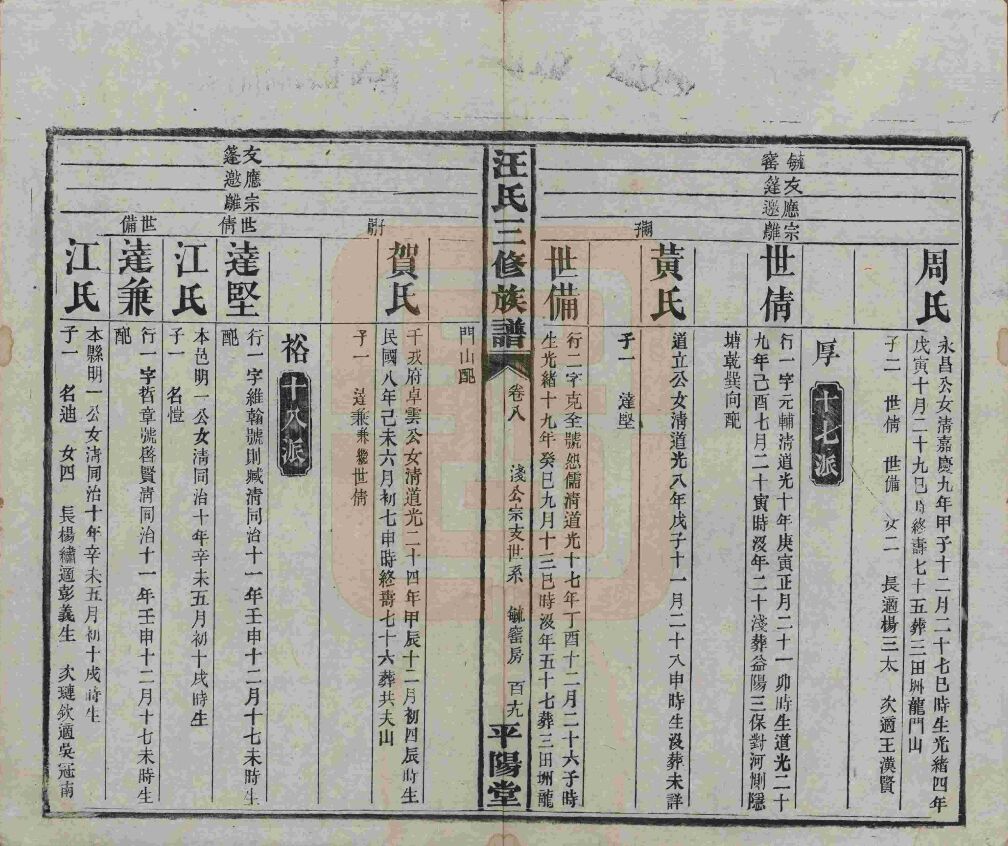 周氏
永昌公女清嘉慶九年甲子十二月二十七巳時生光緒四年
戊寅十月二十九巳時終壽七十五葬三田洲龍門山
子二 世倩 世備 女二 長適楊三太 次適王漢賢
厚 十七派
毓窑
友篷
應邀
宗離
世倩
行一字元輔清道光十年庚寅正月二十一卯時生道光二十
九年己酉七月二十寅時沒年二十淺葬益陽三保對河側隱
塘乾巽向配
黃氏
道立公女清道光八年戊子十一月二十八申時生沒葬未詳
子一 達堅
嗣子
世備
行二字克全號恕儒清道光十七年丁酉十二月二十六子時
生光緒十九年癸巳九月十三巳時沒年五十七葬三田洲龍
汪氏三修族譜
卷八 淺公宗支世系 毓窑房 百九
平陽堂
門山配
賀氏
千戎府卓雲公女清道光二十四年甲辰十二月初四辰時生
民國八年己未六月初七申時終壽七十六葬共夫山
子一 達兼兼繼世倩
裕 十八派
友篷
應邀
宗離
世倩
達堅
行一字維翰號則臧清同治十一年壬申十二月十七未時生
配
江氏
本邑明一公女清同治十年辛未五月初十戌時生
子一 名愷
世備
達兼
行一字哲章號啓賢清同治十一年壬申十二月十七未時生
配
江氏
本縣明一公女清同治十年辛未五月初十戌時生
子一 名迪 女四 長楊繡適彭義生 次璉欽適吳冠南